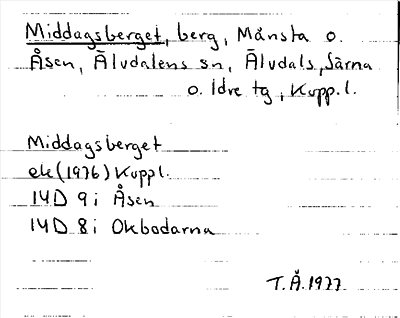 Middagsberget, berg, Månsta o.
Åsen, Älvdalens sn, Älvdals, Särna
o. Idre tg, Kopp. l.
Middagsberget
ek (1976) Koppl.
14D 9i Åsen
14D 8i Okbodarna
T.Å. 1977